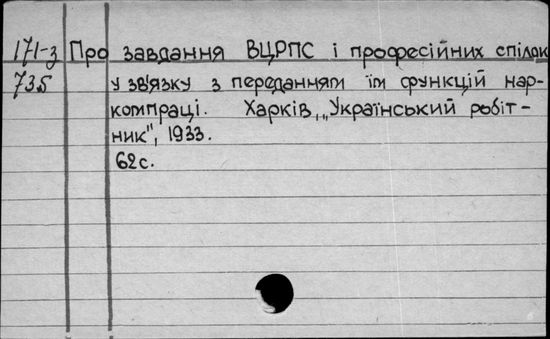 171-з Про завдання ВЦРПС і професійних спілок
735 у зв'язку з переданням їм функцій нар-
компраці. Харків, „Український робіт-
ник", 1933.
62с.